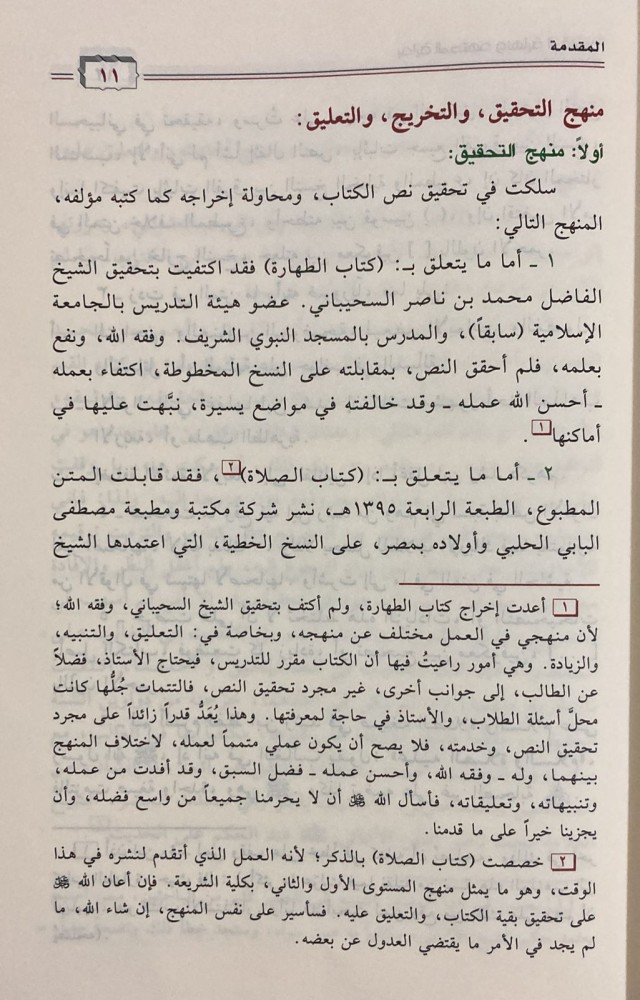 المقدمة
١١
منهج التحقيق، والتخريج، والتعليق:
أولاً: منهج التحقيق:
سلكت في تحقيق نص الكتاب، ومحاولة إخراجه كما كتبه مؤلفه،
المنهج التالي:
١ ـ أما ما يتعلق بـ: (كتاب الطهارة) فقد اكتفيت بتحقيق الشيخ
الفاضل محمد بن ناصر السحيباني. عضو هيئة التدريس بالجامعة
الإسلامية (سابقاً)، والمدرس بالمسجد النبوي الشريف. وفقه الله، ونفع
بعلمه، فلم أحقق النص، بمقابلته على النسخ المخطوطة، اكتفاء بعمله
ـ أحسن الله عمله ـ وقد خالفته في مواضع يسيرة، نبَّهت عليها في
أماكنها١.
٢ ـ أما ما يتعلق بـ: (كتاب الصلاة)٢، فقد قابلت المتن
المطبوع، الطبعة الرابعة ١٣٩٥هـ، نشر شركة مكتبة ومطبعة مصطفى
البابي الحلبي وأولاده بمصر، على النسخ الخطية، التي اعتمدها الشيخ
١ أعدت إخراج كتاب الطهارة، ولم أكتف بتحقيق الشيخ السحيباني، وفقه الله؛
لأن منهجي في العمل مختلف عن منهجه، وبخاصة في: التعليق، والتنبيه،
والزيادة. وهي أمور راعيتُ فيها أن الكتاب مقرر للتدريس، فيحتاج الأستاذ، فضلاً
عن الطالب، إلى جوانب أخرى، غير مجرد تحقيق النص، فالتتمات جُلُّها كانت
محلَّ أسئلة الطلاب، والأستاذ في حاجة لمعرفتها. وهذا يُعَدُّ قدراً زائداً على مجرد
تحقيق النص، وخدمته، فلا يصح أن يكون عملي متمماً لعمله، لاختلاف المنهج
بينهما، وله ـ وفقه الله، وأحسن عمله ـ فضل السبق، وقد أفدت من عمله،
وتنبيهاته، وتعليقاته، فأسأل الله ﷻ أن لا يحرمنا جميعاً من واسع فضله، وأن
يجزينا خيراً على ما قدمنا.
٢ خصصت (كتاب الصلاة) بالذكر؛ لأنه العمل الذي أتقدم لنشره في هذا
الوقت، وهو ما يمثل منهج المستوى الأول والثاني، بكلية الشريعة. فإن أعان الله ﷻ
على تحقيق بقية الكتاب، والتعليق عليه. فسأسير على نفس المنهج، إن شاء الله، ما
لم يجد في الأمر ما يقتضي العدول عن بعضه.